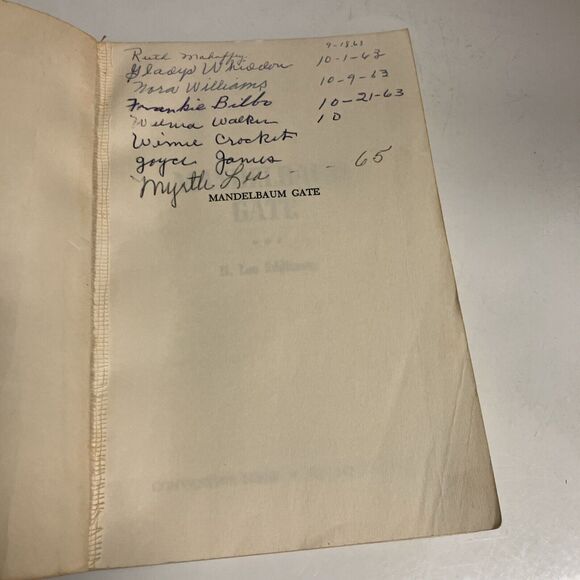 Ruth Mahaffey 9-18-63
Gladys Whiddon 10-1-63
Nora Williams 10-9-63
Frankie Bilbo 10-21-63
Wilma Walker 10
Winnie Crocket
Joyce James
Myrtle Lea - - 65
MANDELBAUM GATE